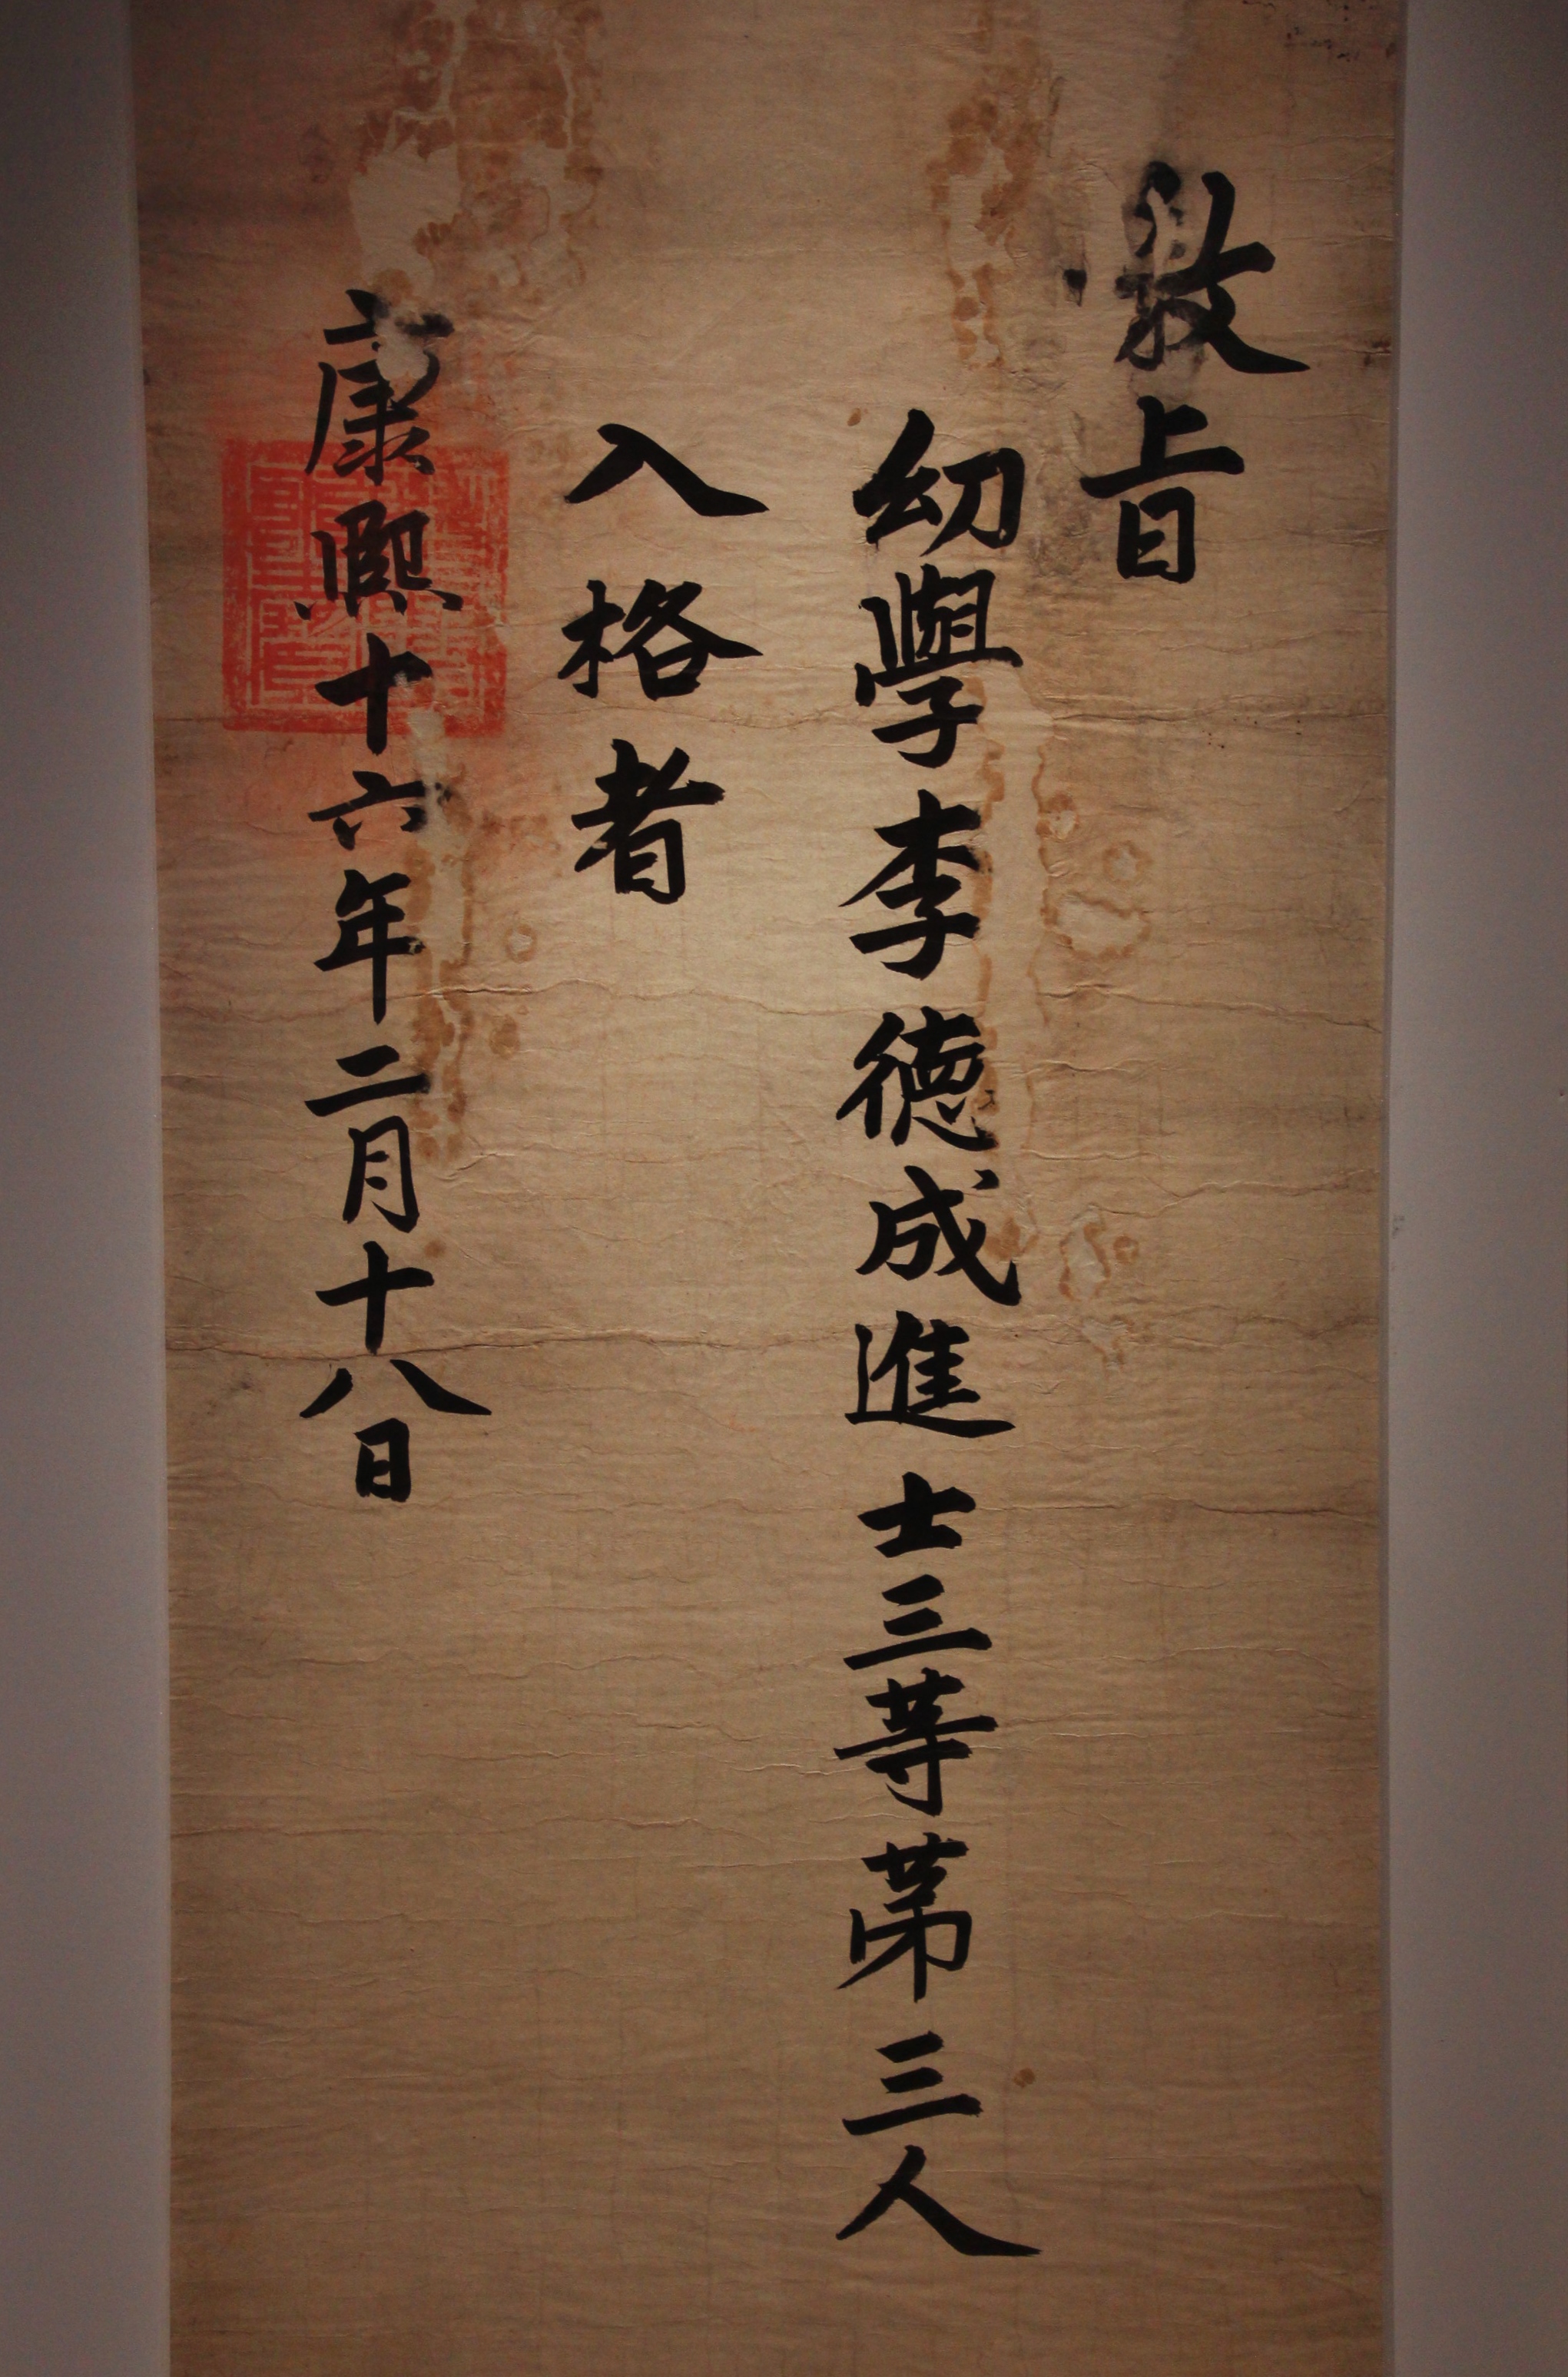 教旨
幼學李德成進士三等第三人
入格者
康熙十六年二月十八日